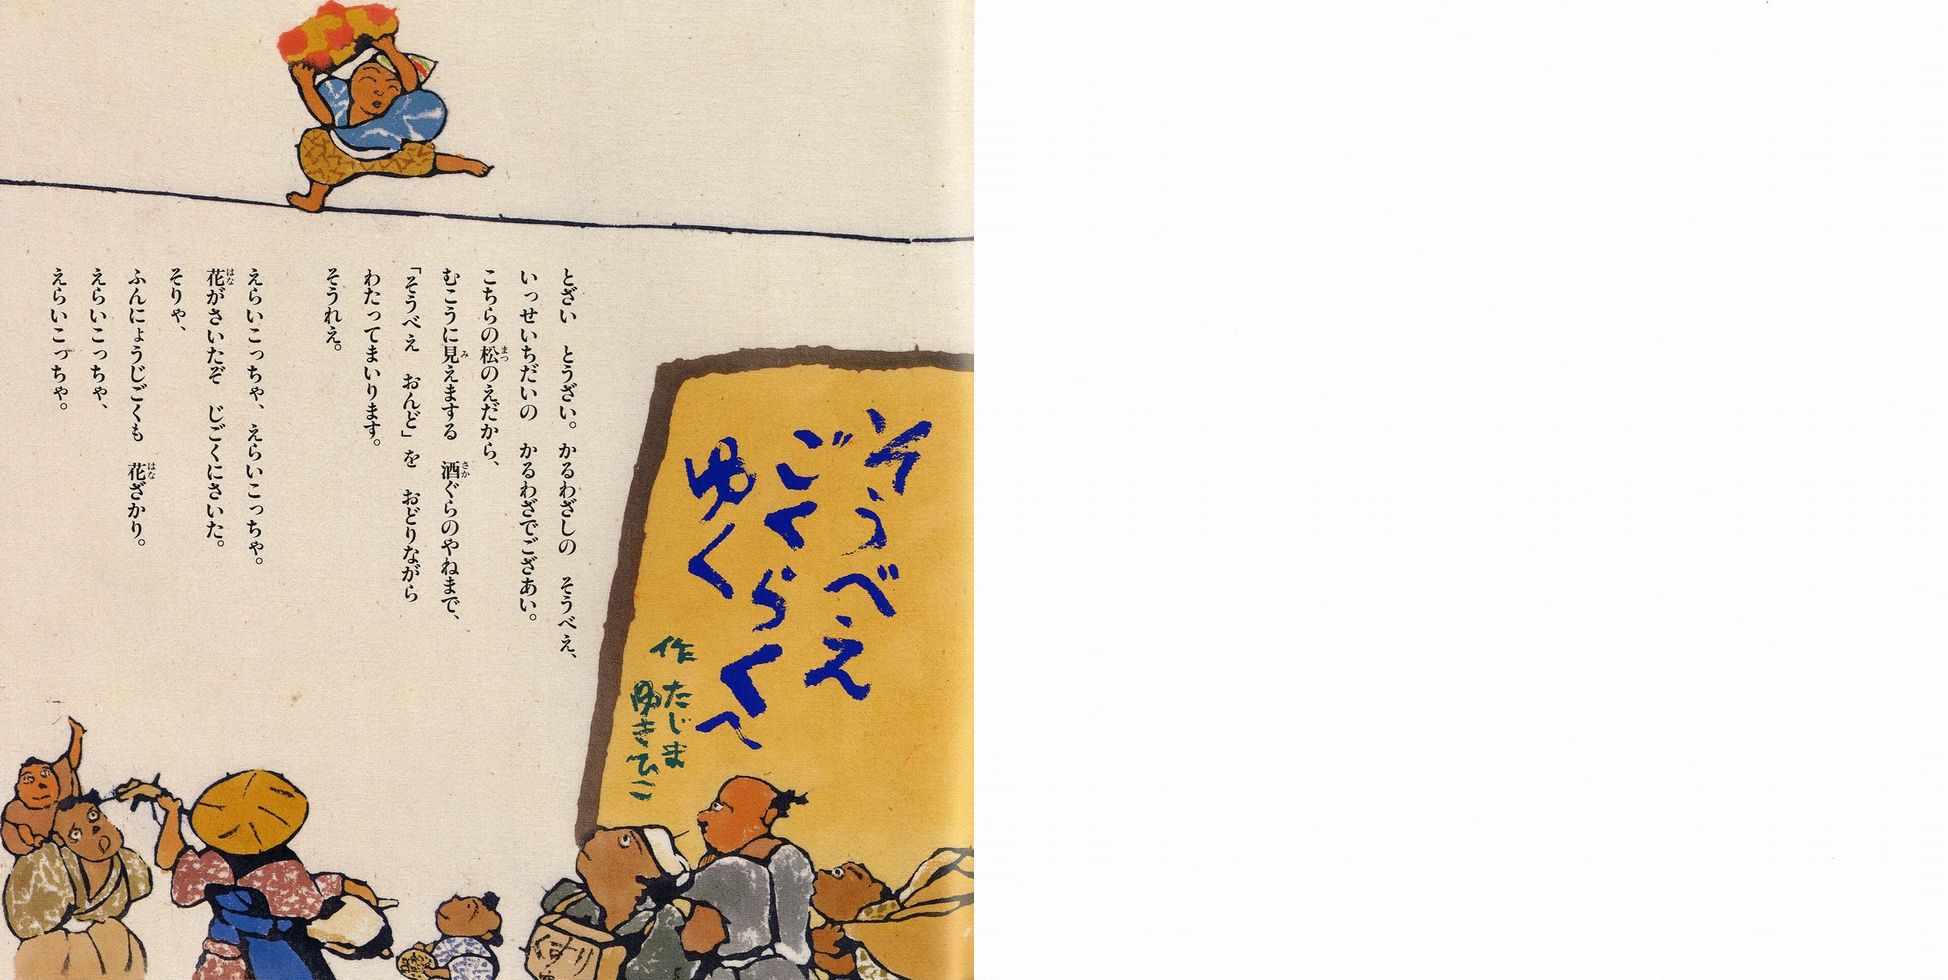 そうべえ
ごくらくへ
ゆく
作 たじま
ゆきひこ
とざい　とうざい。かるわざしの　そうべえ、
いっせいちだいの　かるわざでござあい。
こちらの松のえだから、
むこうに見えまする　酒ぐらのやねまで、
「そうべえ　おんど」を　おどりながら
わたってまいります。
そうれえ。
えらいこっちゃ、えらいこっちゃ。
花がさいたぞ　じごくにさいた。
そりゃ、
ふんにょうじごくも　花ざかり。
えらいこっちゃ、
えらいこっちゃ。